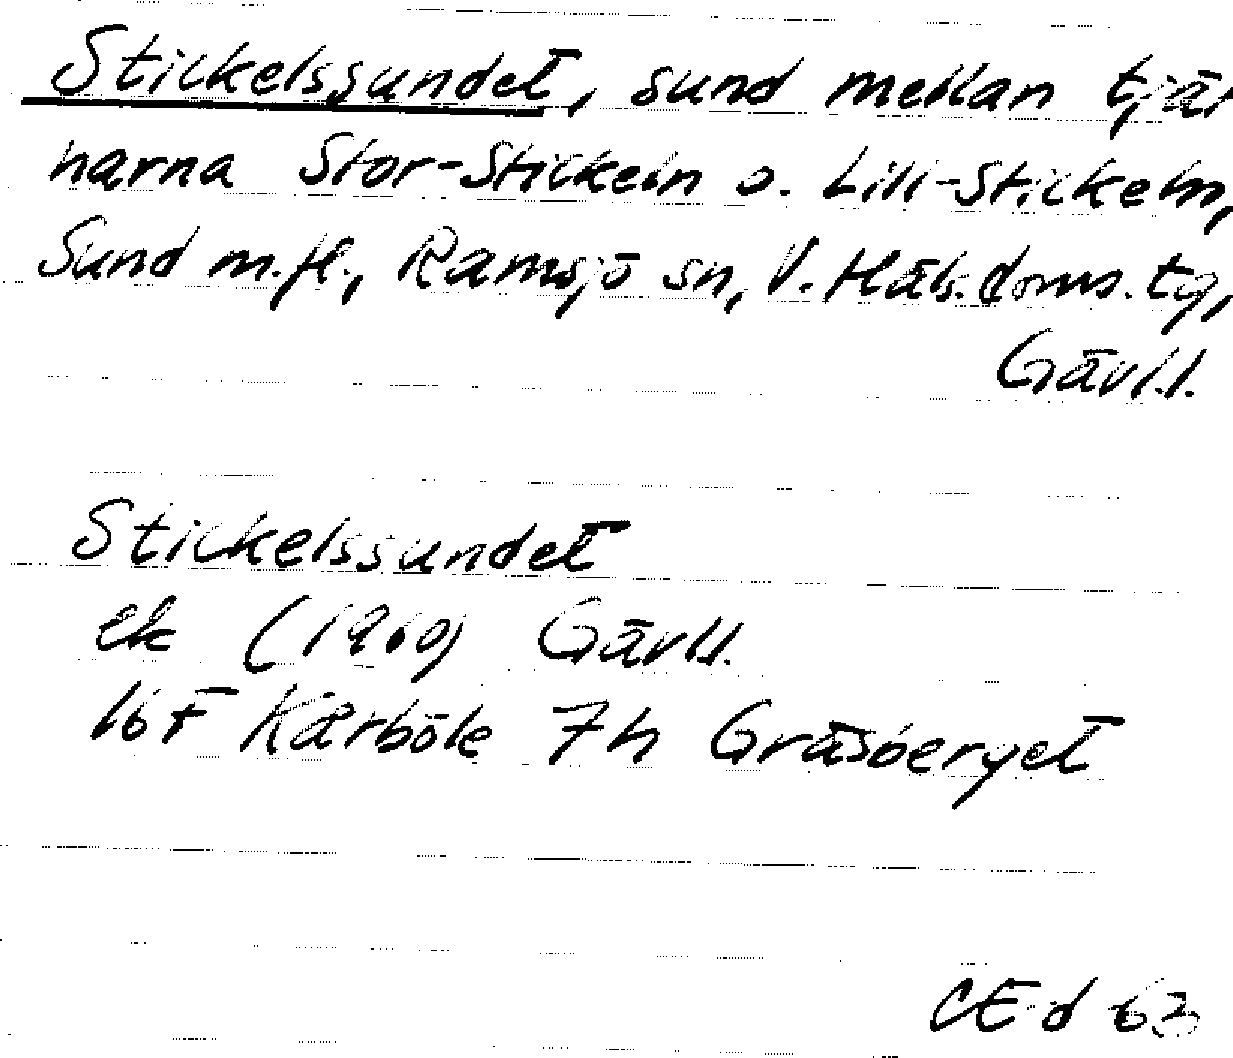 Stickelssundet, sund mellan tjär
narna Stor-Stickeln o. Lill-Stickeln,
Sund m.fl., Ramsjö sn, V. Häls. doms. tg,
Gävl.l.
Stickelssundet
ek (1960) Gävl.l.
16F Kårböle 7h Gräsberget
CE-d 63